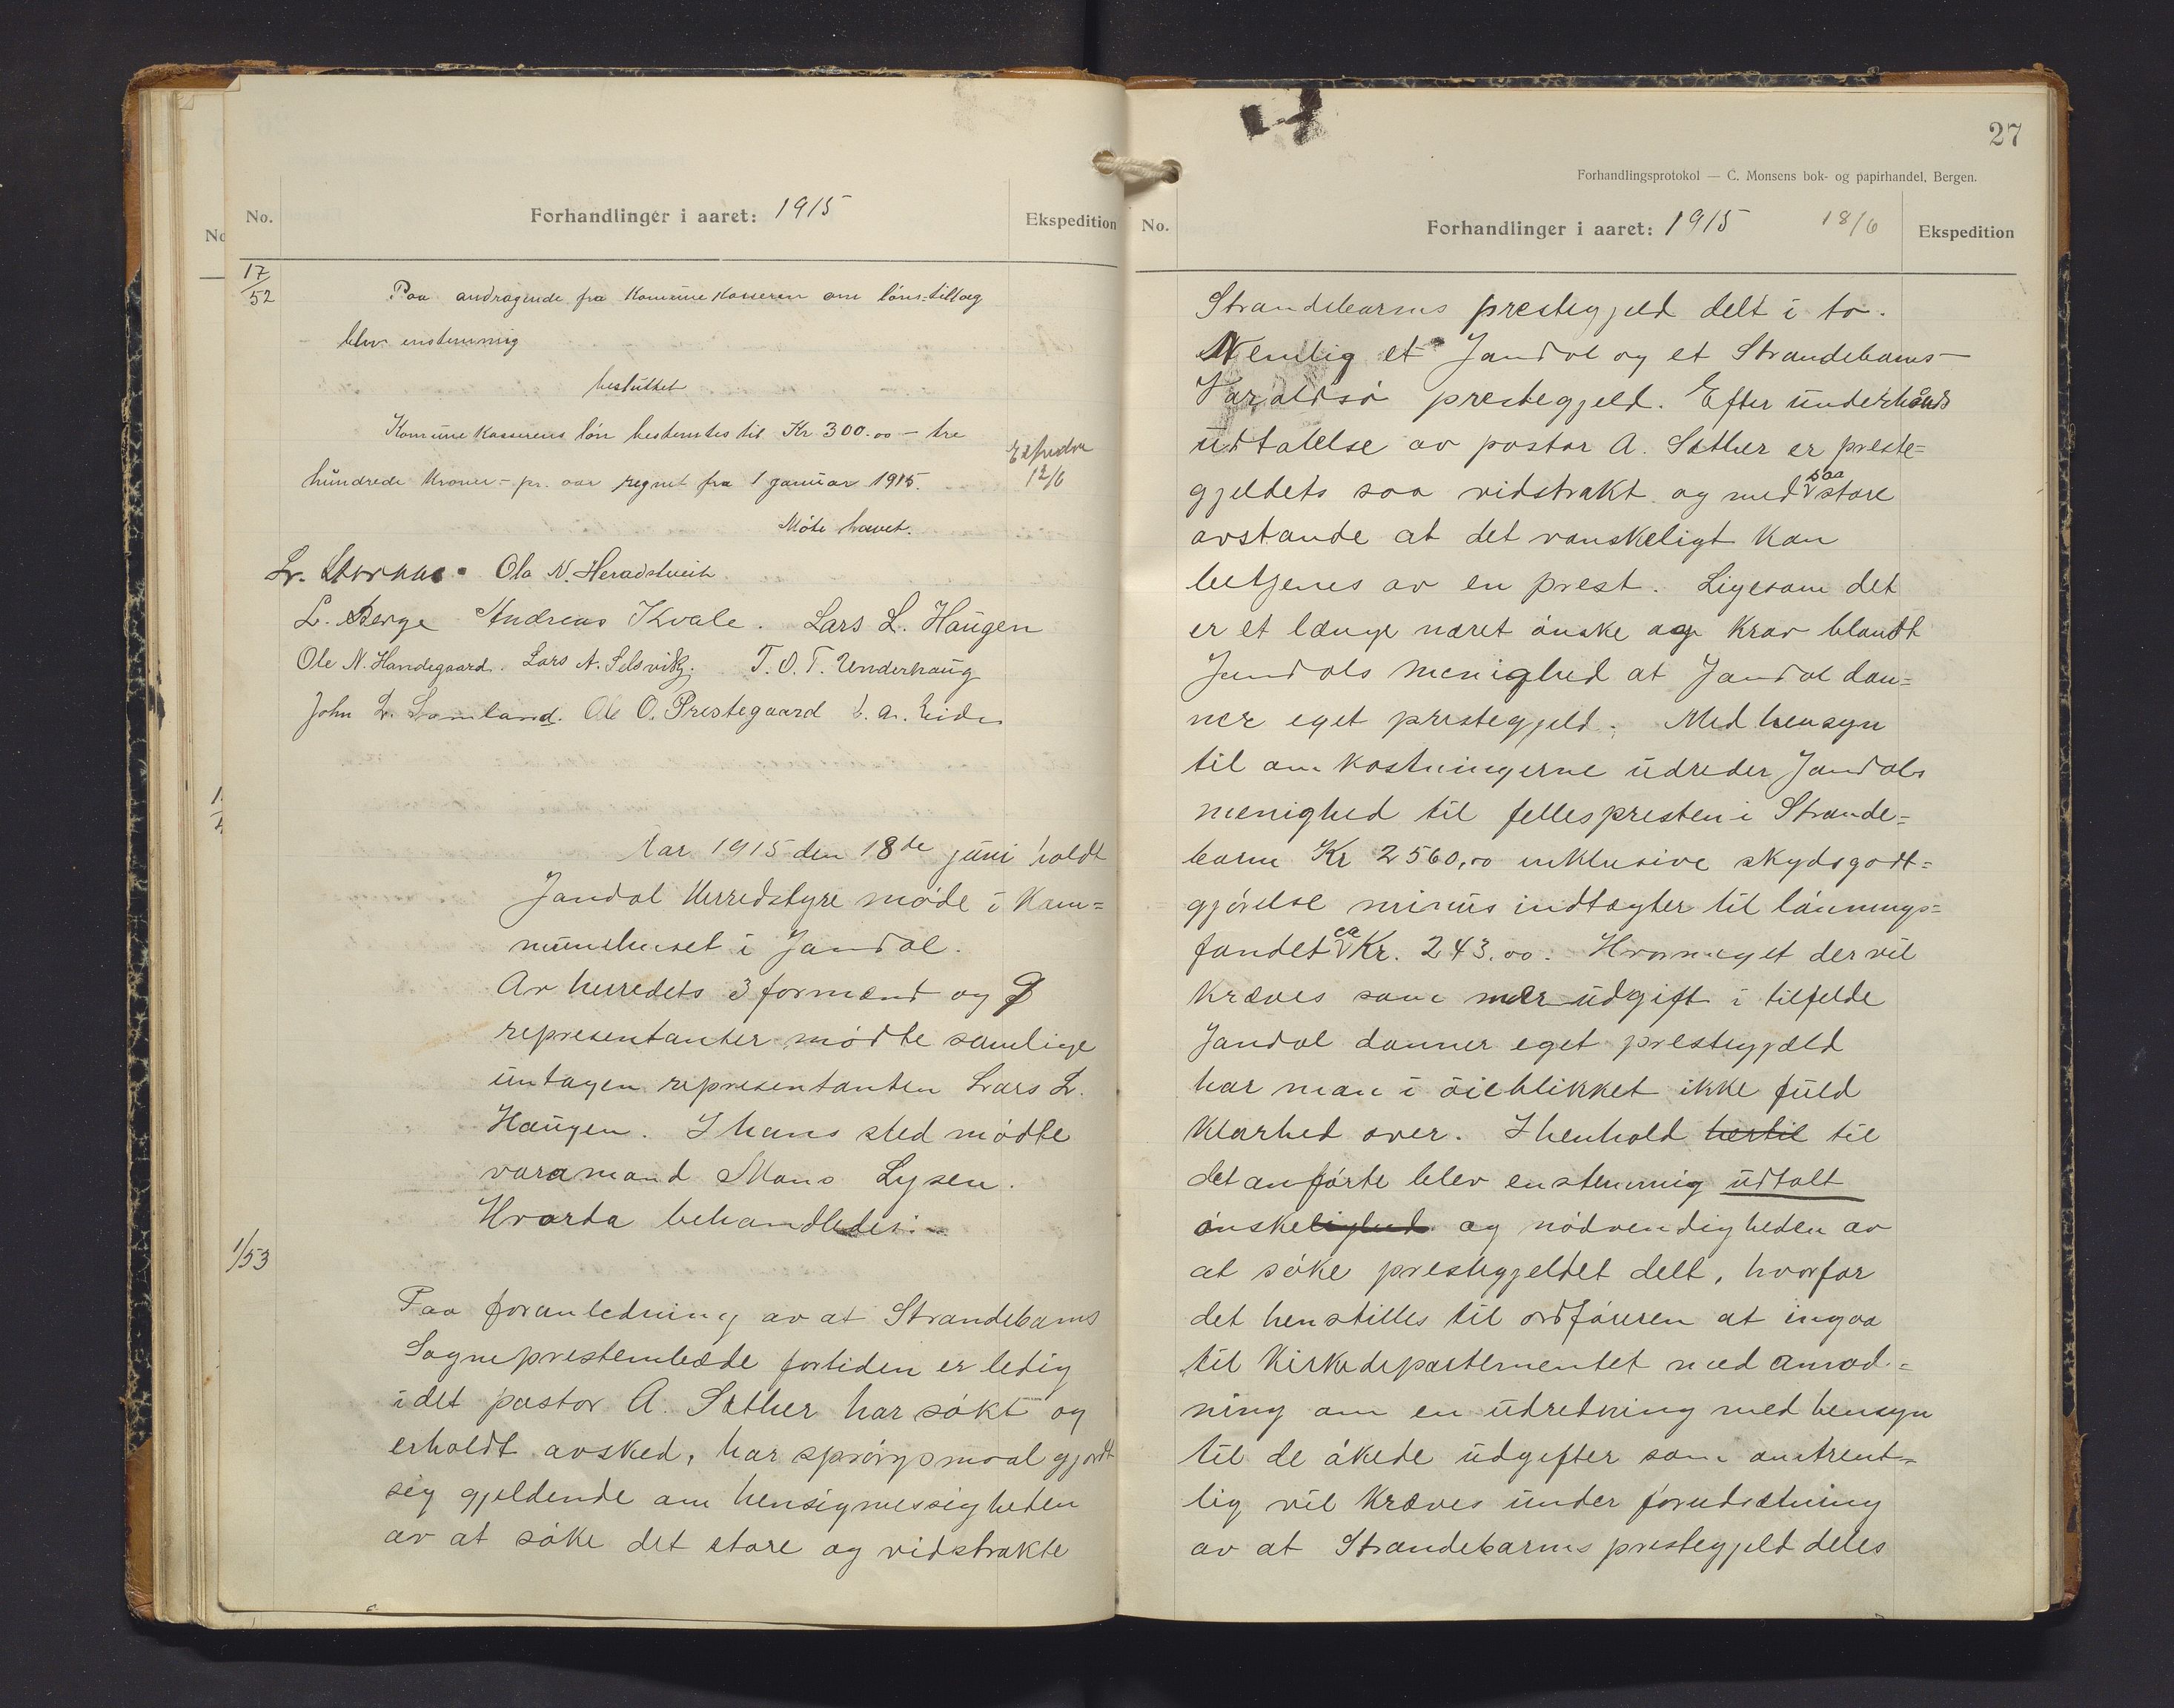 No.
Forhandlinger i aaret: 1915
Ekspedition
17/52
Paa andragende fra Kommune Kasseren om löns-tillæg
blev enstemmig
besluttet
Kommune Kasserens lön bestemtes til Kr 300.00 - tre
hundrede Kroner - pr. aar regnet fra 1 januar 1915.
12/6
Möte hævet.
Ola N. Heradstveit.
L. Berge Andreas Kvale. Lars L. Haugen
Ole N. Handegaard. Lars N. Selsvik. T. O. T. Underhaug
John L. Ole O. Prestegaard
Aar 1915 den 18de juni holdt
Jondal Herredstyre møde i Kom=
munehuset i Jondal.
Av herredets 3 formænd og 9
representanter mödte samlige
untagen representanten Lars L.
Haugen. I hans sted mödte
varamand Mons Lysen.
Hvorda behandledes:-
1/53
Paa foranledning av at Strandebarms
Sogneprestembede fortiden er ledig
idet pastor A. Sæther har sökt og
erholdt avsked, har spörgsmaal gjordt
sig gjeldende om hensigmessigheden
av at söke det store og vidstrakte
27
Forhandlingsprotokol — C. Monsens bok- og papirhandel, Bergen.
No.
Forhandlinger i aaret: 1915 18/6
Ekspedition
Strandebarms prestegjeld delt i to.
Nemlig et Jondal og et Strandebarms-
Varaldsö prestegjeld. Efter underhånds
udtalelse av pastor A. Sæther er preste=
gjeldets saa vidstrakt og med saa store
avstande at det vanskeligt kan
betjenes av en prest. Ligesom det
er et længe næret önske og krav blandt
Jondals menighed at Jondal dan=
ner eget prestegjeld. Med hensyn
til omkostningerne udreder Jondals
menighed til fellespresten i Strande=
barm Kr 2560,00 inklusive skydsgodt=
gjörelse minus indtægter til lönnings=
fondet ca Kr. 243.00. Hvormeget der vil
kræves som merudgift i tilfelde
Jondal danner eget prestegjæld
har man i öieblikket ikke fuld
klarhed over. I henhold hertil til
det anförte blev enstemmig udtalt
önskelighed og nödvendigheden av
at söke prestegjeldet delt, hvorfor
det henstilles til ordföreren at ingaa
til Kirkedepartementet med anmod=
ning om en udredning med hensyn
til de ökede udgifter som omtrent=
lig vil kræves under forudsætning
av at Strandebarms prestegjeld deles